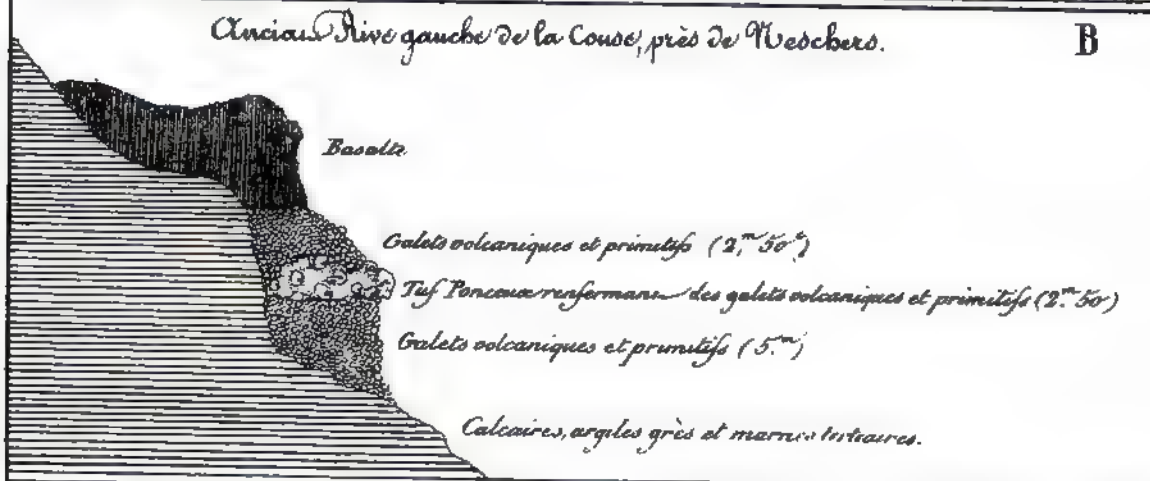 Anciau Rive gauche de la Couse, près de Neschers.
B
Basalte
Galets volcaniques et primitifs (2,m 50c)
Tuf Ponceux renfermant des galets volcaniques et primitifs (2.m 50c)
Galets volcaniques et primitifs (5.m)
Calcaires, argiles grès et marnes tertiaires.